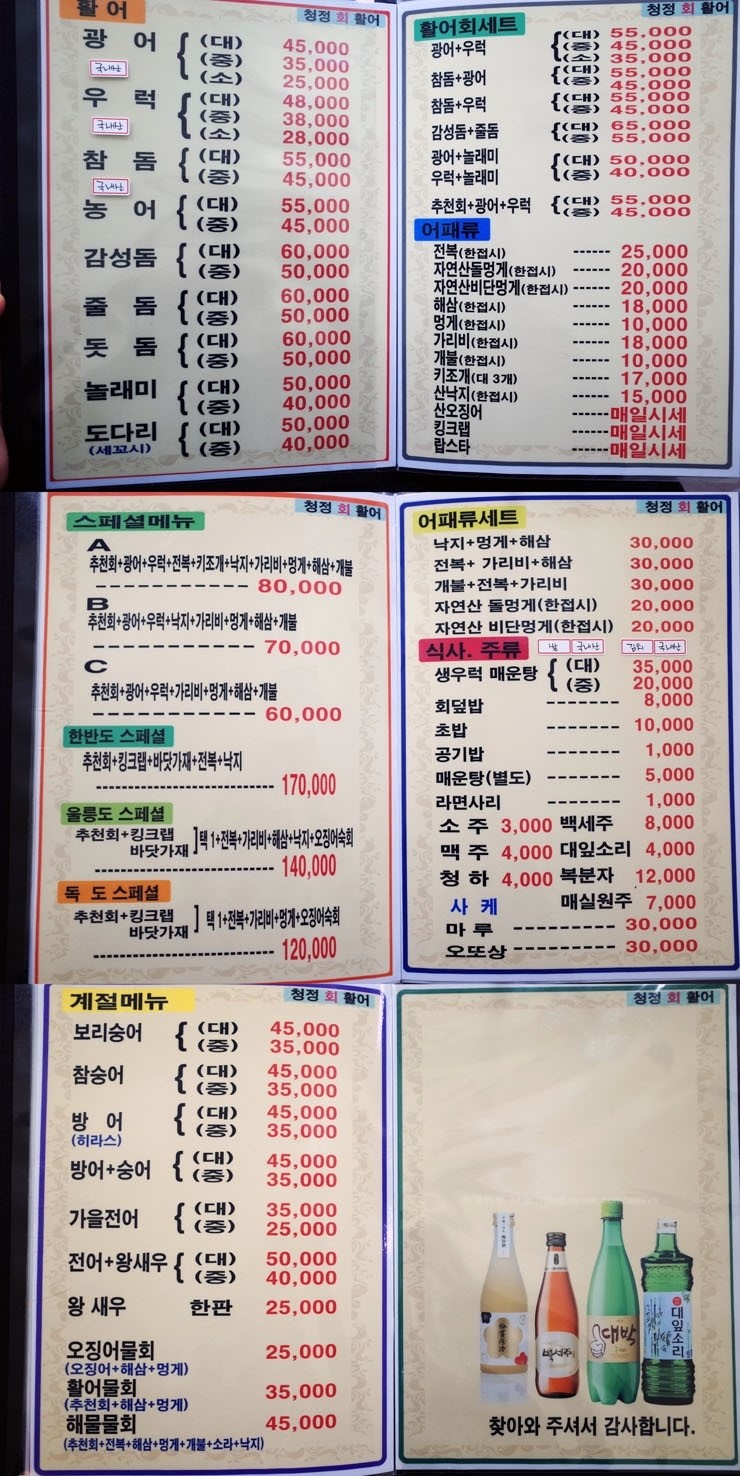 활 어
청정 회 활어
광 어 (대) 45,000
(중) 35,000
국내산 (소) 25,000
우 럭 (대) 48,000
(중) 38,000
국내산 (소) 28,000
참 돔 (대) 55,000
(중) 45,000
국내산
농 어 (대) 55,000
(중) 45,000
감성돔 (대) 60,000
(중) 50,000
줄 돔 (대) 60,000
(중) 50,000
돗 돔 (대) 60,000
(중) 50,000
놀래미 (대) 50,000
(중) 40,000
도다리 (대) 50,000
(세꼬시) (중) 40,000
청정 회 활어
활어회세트
광어+우럭 (대) 55,000
(중) 45,000
(소) 35,000
참돔+광어 (대) 55,000
(중) 45,000
참돔+우럭 (대) 55,000
(중) 45,000
감성돔+줄돔 (대) 65,000
(중) 55,000
광어+놀래미 (대) 50,000
우럭+놀래미 (중) 40,000
추천회+광어+우럭 (대) 55,000
(중) 45,000
어패류
전복(한접시) ------ 25,000
자연산돌멍게(한접시) ------ 20,000
자연산비단멍게(한접시) ------ 20,000
해삼(한접시) ------ 18,000
멍게(한접시) ------ 10,000
가리비(한접시) ------ 18,000
개불(한접시) ------ 10,000
키조개(대 3개) ------ 17,000
산낙지(한접시) ------ 15,000
산오징어 ------매일시세
킹크랩 ------매일시세
랍스타 ------매일시세
청정 회 활어
스페셜메뉴
A
추천회+광어+우럭+전복+키조개+낙지+가리비+멍게+해삼+개불
------------ 80,000
B
추천회+광어+우럭+낙지+가리비+멍게+해삼+개불
------------ 70,000
C
추천회+광어+우럭+가리비+멍게+해삼+개불
------------ 60,000
한반도 스페셜
추천회+킹크랩+바닷가재+전복+낙지
------------ 170,000
울릉도 스페셜
추천회+킹크랩
바닷가재 ] 택 1+전복+가리비+해삼+낙지+오징어숙회
------------ 140,000
독 도 스페셜
추천회+킹크랩
바닷가재 ] 택 1+전복+가리비+멍게+오징어숙회
------------ 120,000
청정 회 활어
어패류세트
낙지+멍게+해삼 30,000
전복+ 가리비+해삼 30,000
개불+전복+가리비 30,000
자연산 돌멍게(한접시) 20,000
자연산 비단멍게(한접시) 20,000
식사. 주류 쌀 국내산 김치 국내산
생우럭 매운탕 (대) 35,000
(중) 20,000
회덮밥 -------- 8,000
초밥 -------- 10,000
공기밥 -------- 1,000
매운탕(별도) -------- 5,000
라면사리 -------- 1,000
소 주 3,000 백세주 8,000
맥 주 4,000 대잎소리 4,000
청 하 4,000 복분자 12,000
사 케 매실원주 7,000
마 루 ---------- 30,000
오또상 ---------- 30,000
계절메뉴
청정 회 활어
보리숭어 (대) 45,000
(중) 35,000
참숭어 (대) 45,000
(중) 35,000
방 어 (대) 45,000
(히라스) (중) 35,000
방어+숭어 (대) 45,000
(중) 35,000
가을전어 (대) 35,000
(중) 25,000
전어+왕새우 (대) 50,000
(중) 40,000
왕 새우 한판 25,000
오징어물회 25,000
(오징어+해삼+멍게)
활어물회 35,000
(추천회+해삼+멍게)
해물물회 45,000
(추천회+전복+해삼+멍게+개불+소라+낙지)
청정 회 활어
백세주
대박
대잎소리
찾아와 주셔서 감사합니다.